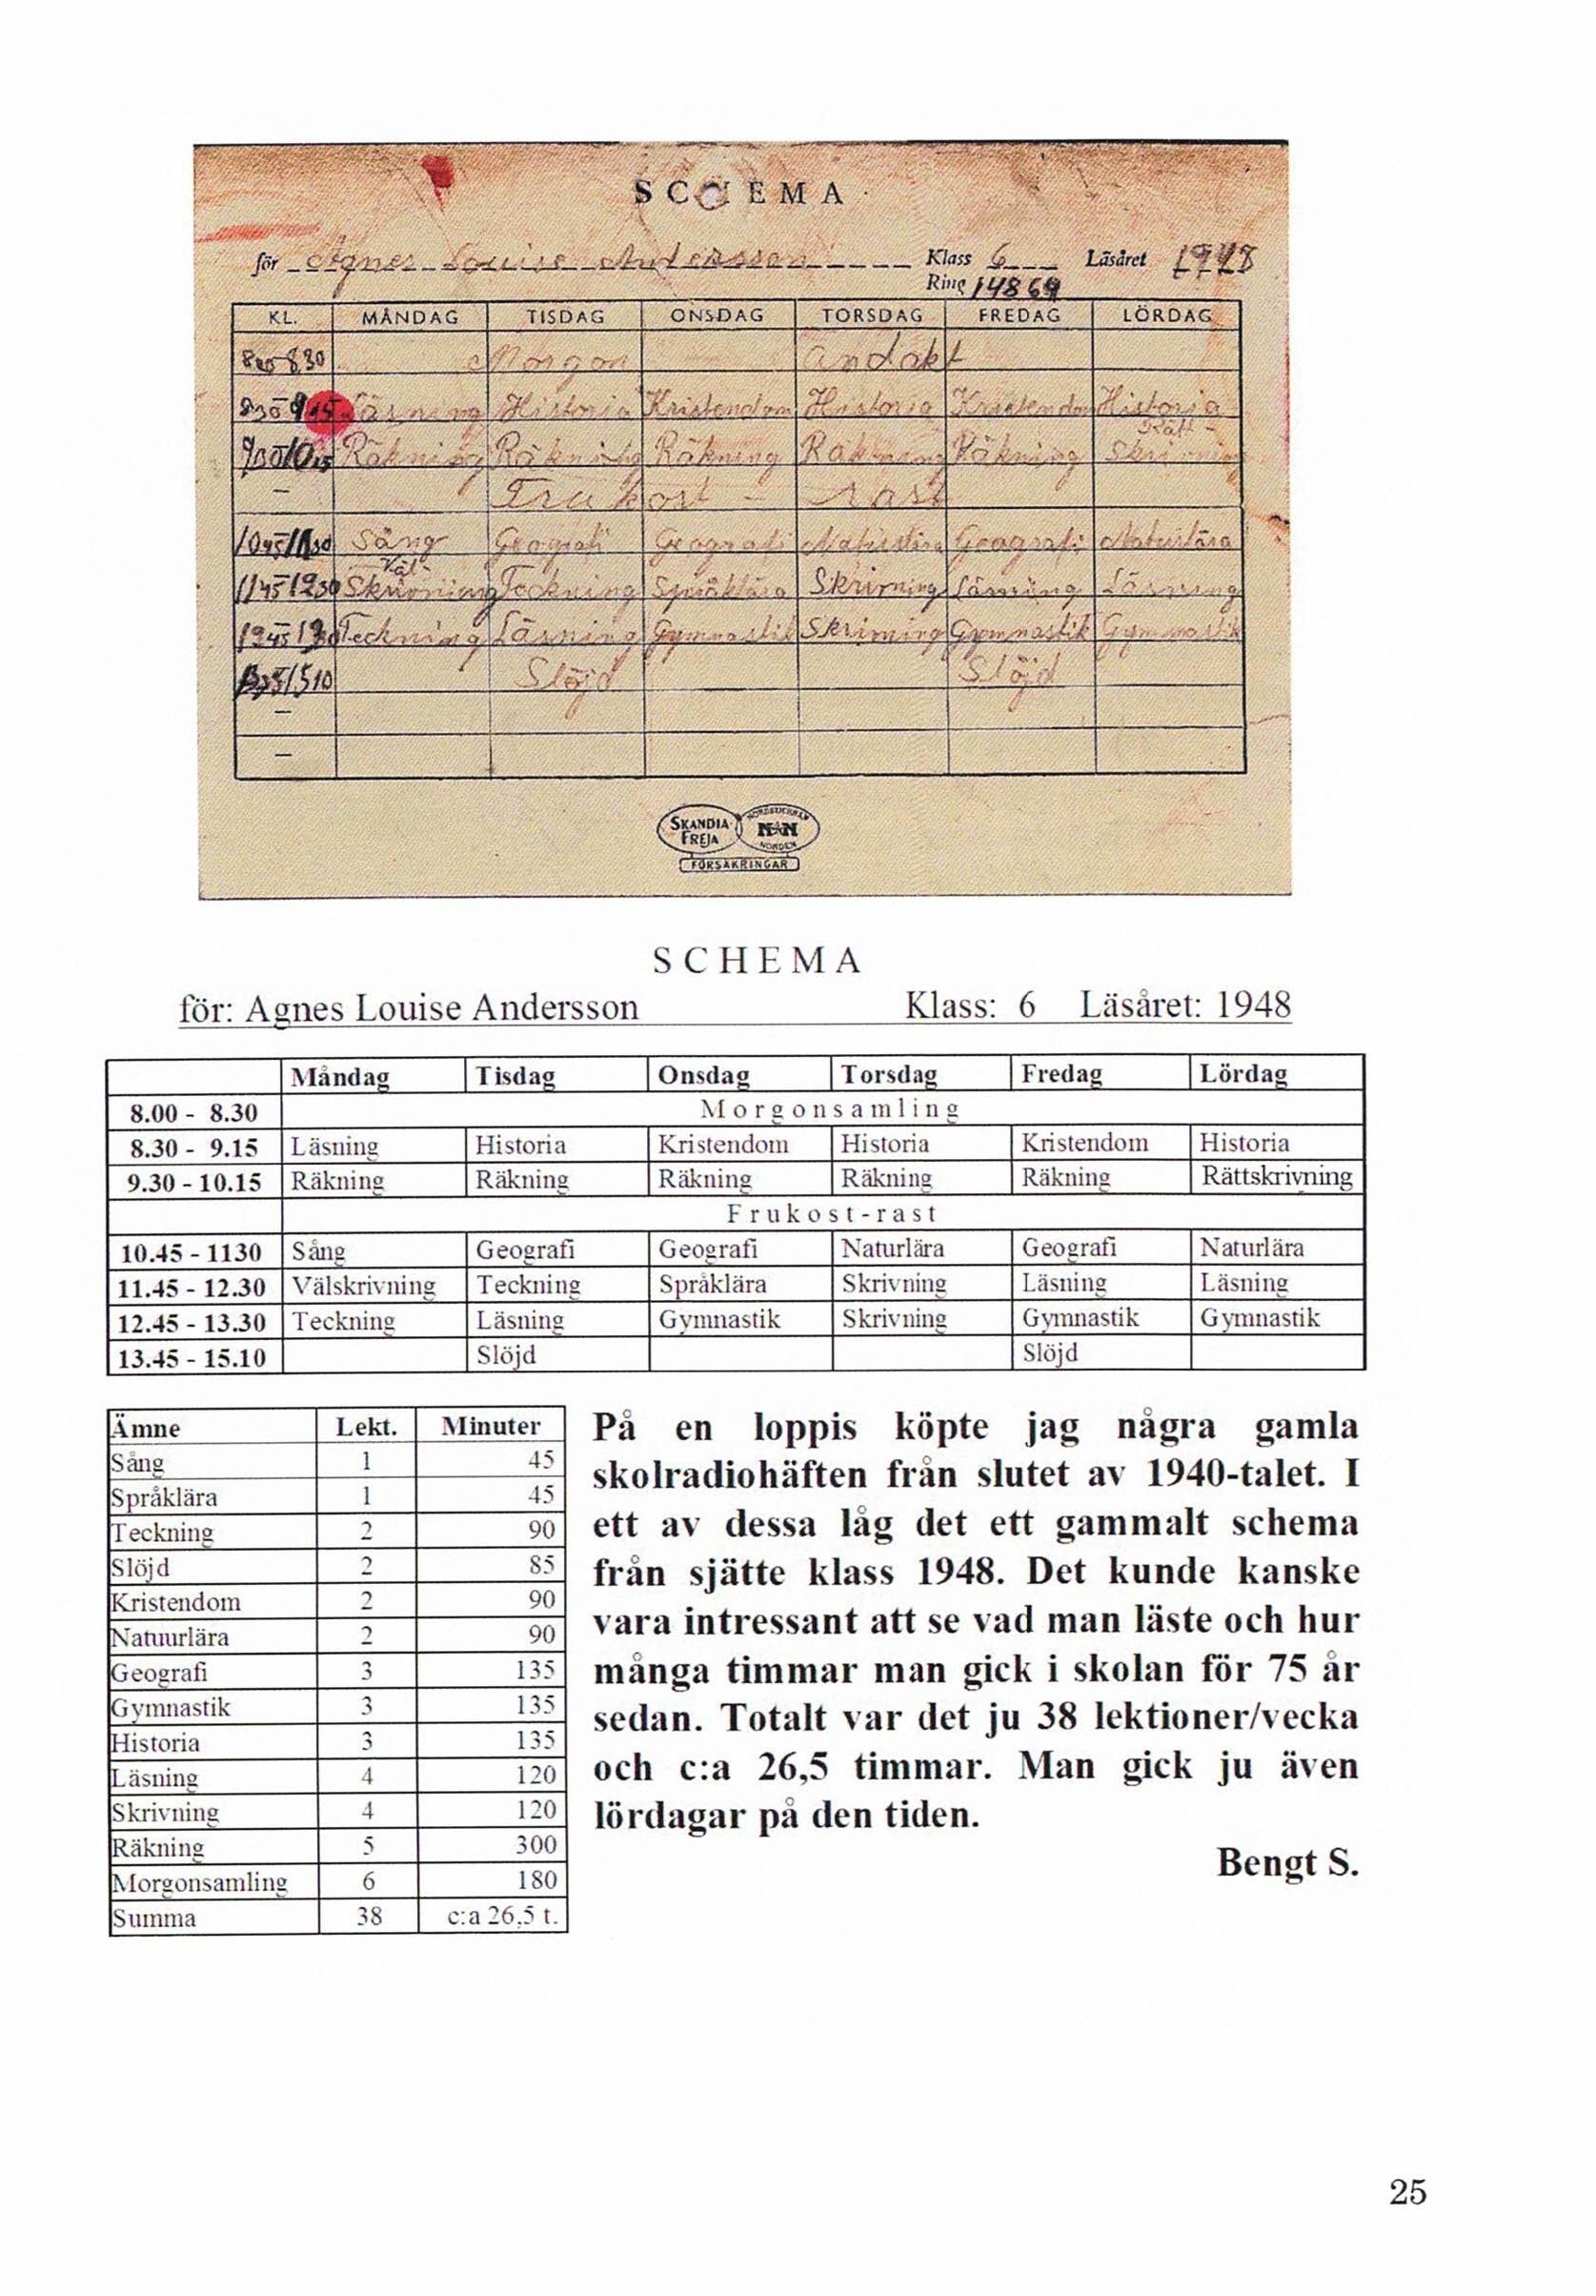 SCHEMA
för Agnes Louise Andersson Klass 6 Läsåret 1948
Ring 14869
KL. MÅNDAG TISDAG ONSDAG TORSDAG FREDAG LÖRDAG
800-830 Morgon andakt
830-915 Läsning Historia Kristendom Historia Kristendom Historia
930-1015 Räkning Räkning Räkning Räkning Räkning Rätt-skrivning
- Frukost - rast
1045-1130 Sång Geografi Geografi Naturlära Geografi Naturlära
1145-1230 Välskrivning Teckning Språklära Skrivning Läsning Läsning
1245-1330 Teckning Läsning Gymnastik Skrivning Gymnastik Gymnastik
1345-1510 Slöjd Slöjd
-
-
SKANDIA FREJA NORDSTJERNAN NORDEN
FÖRSÄKRINGAR
SCHEMA
för: Agnes Louise Andersson Klass: 6 Läsåret: 1948
Måndag Tisdag Onsdag Torsdag Fredag Lördag
8.00 - 8.30 Morgonsamling
8.30 - 9.15 Läsning Historia Kristendom Historia Kristendom Historia
9.30 - 10.15 Räkning Räkning Räkning Räkning Räkning Rättskrivning
Frukost-rast
10.45 - 1130 Sång Geografi Geografi Naturlära Geografi Naturlära
11.45 - 12.30 Välskrivning Teckning Språklära Skrivning Läsning Läsning
12.45 - 13.30 Teckning Läsning Gymnastik Skrivning Gymnastik Gymnastik
13.45 - 15.10 Slöjd Slöjd
Ämne Lekt. Minuter
Sång 1 45
Språklära 1 45
Teckning 2 90
Slöjd 2 85
Kristendom 2 90
Natuurlära 2 90
Geografi 3 135
Gymnastik 3 135
Historia 3 135
Läsning 4 120
Skrivning 4 120
Räkning 5 300
Morgonsamling 6 180
Summa 38 c:a 26,5 t.
På en loppis köpte jag några gamla
skolradiohäften från slutet av 1940-talet. I
ett av dessa låg det ett gammalt schema
från sjätte klass 1948. Det kunde kanske
vara intressant att se vad man läste och hur
många timmar man gick i skolan för 75 år
sedan. Totalt var det ju 38 lektioner/vecka
och c:a 26,5 timmar. Man gick ju även
lördagar på den tiden.
Bengt S.
25